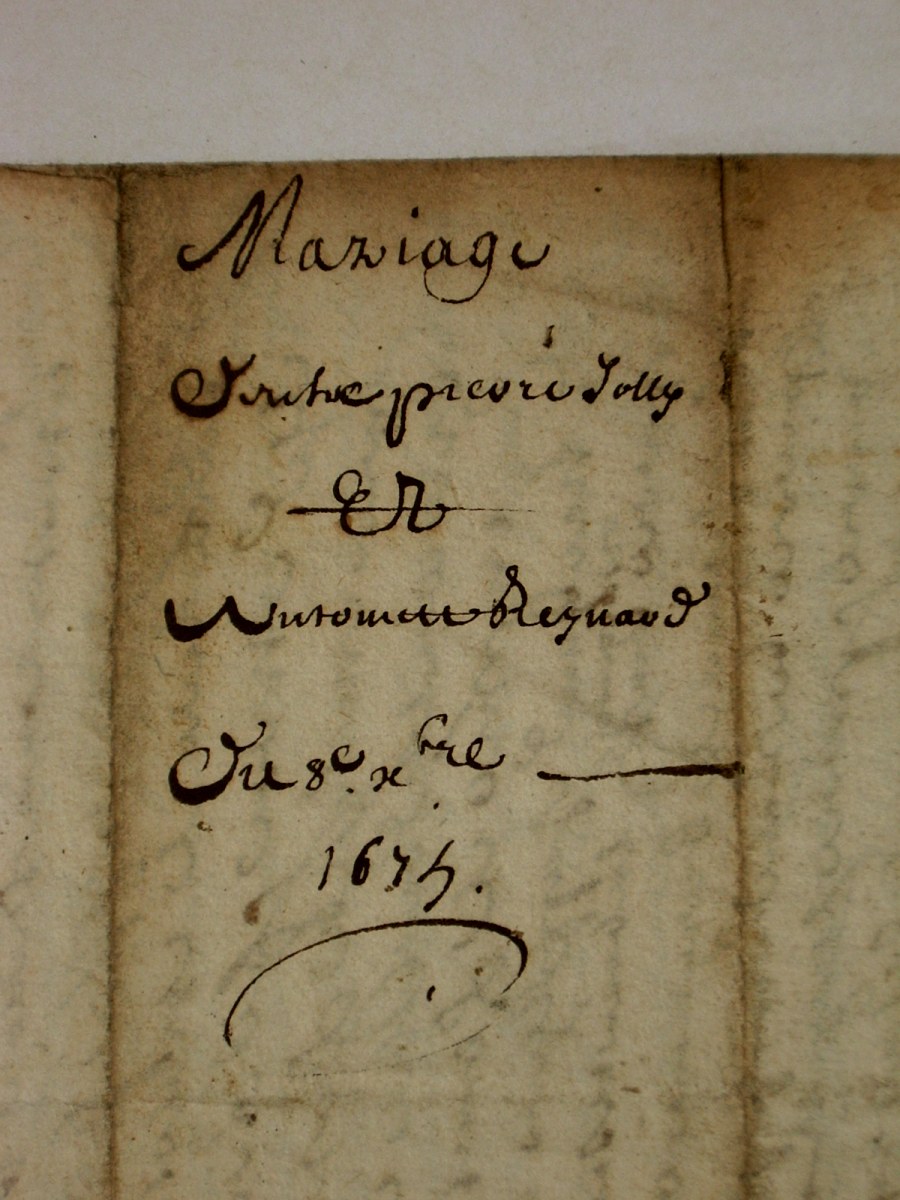 Mariage
Entre pierre Jolly
Et
Antoinette Reynard
Du 8e. xbre
1675.